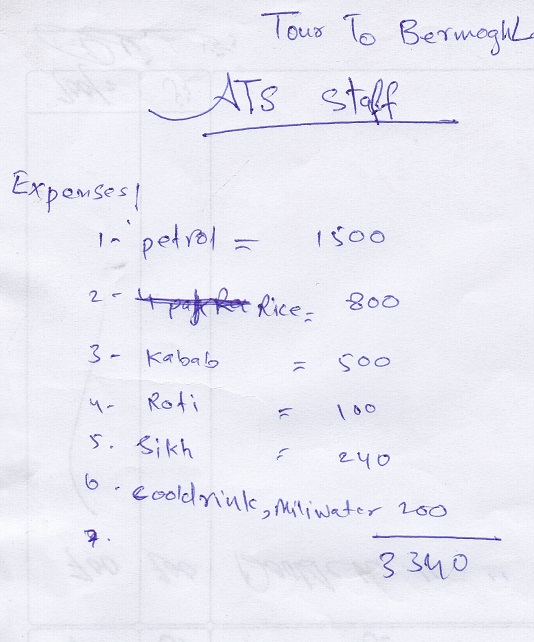 Tour To Bermoghl
ATS Staff
Expenses!
1- petrol = 1500
2- Rice = 800
3- Kabab = 500
4- Roti = 100
5. Sikh = 240
6. cooldrink, Miliwater 200
7.
3340